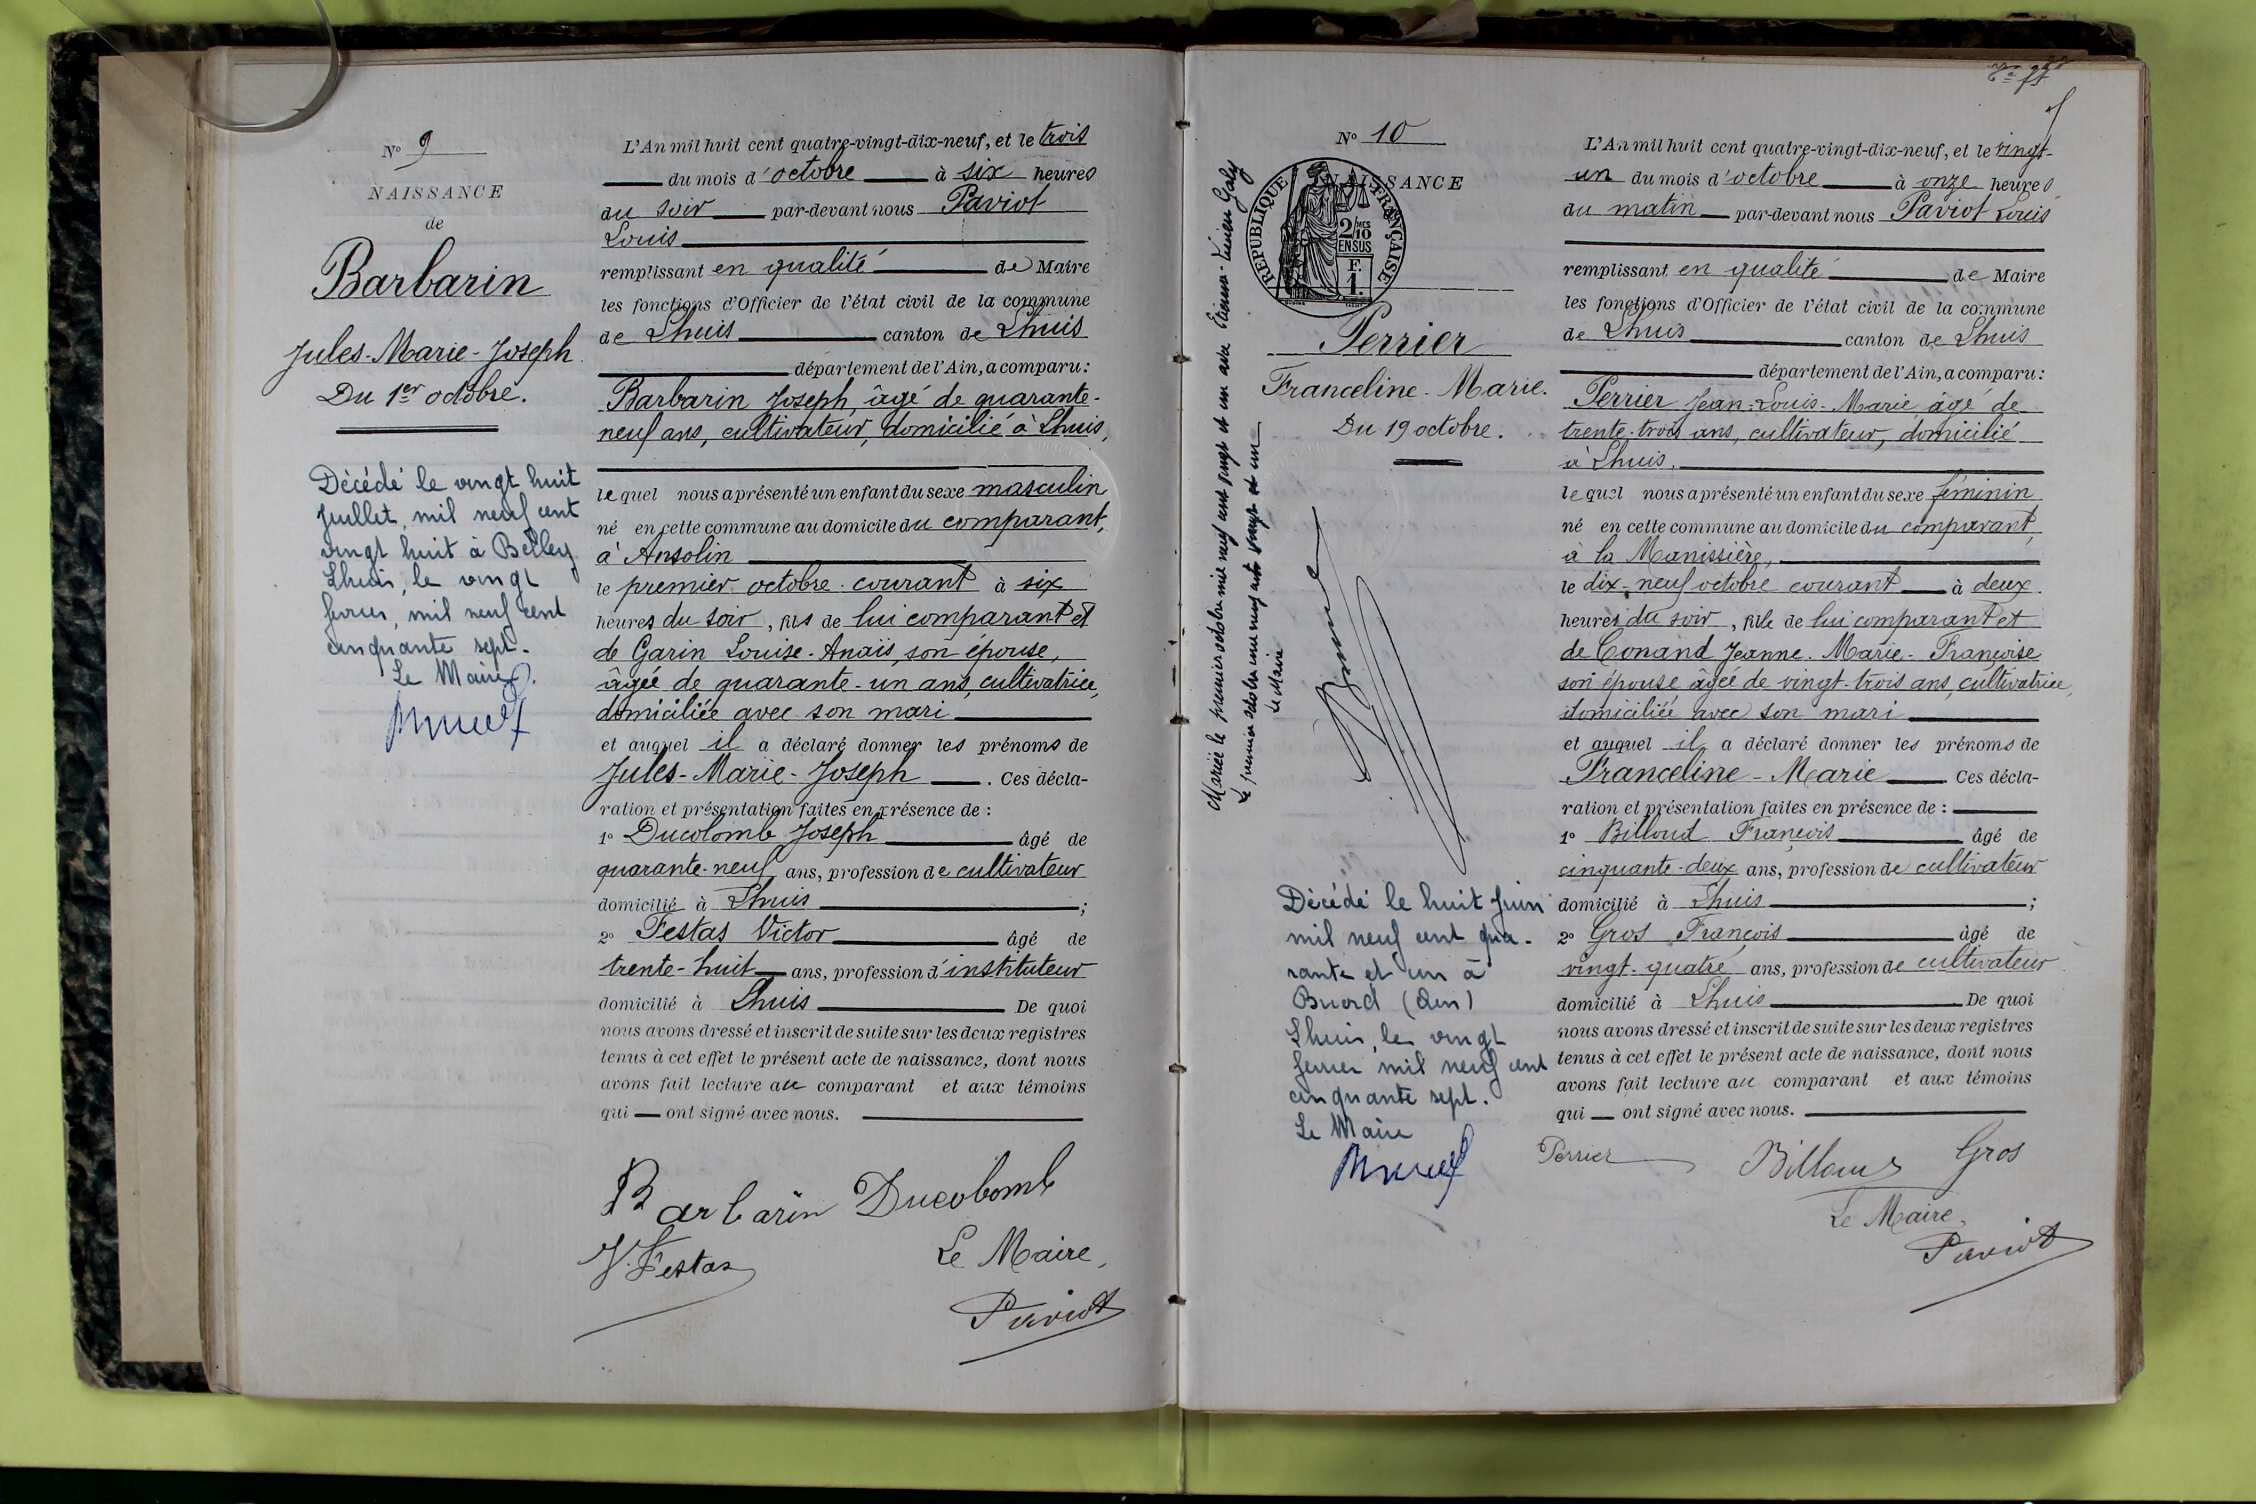 N° 9
NAISSANCE
de
Barbarin
Jules-Marie-Joseph
Du 1er octobre.
Décédé le vingt huit
Juillet, mil neuf cent
vingt huit à Belley
Lhuis, le vingt
mil neuf cent
cinquante sept.
Le Maire
L'An mil huit cent quatre-vingt-dix-neuf, et le trois
du mois d'octobre à six heures
du soir par-devant nous Paviot
Louis
remplissant en qualité de Maire
les fonctions d'Officier de l'état civil de la commune
de Lhuis canton de Lhuis
département de l'Ain, a comparu:
Barbarin Joseph, âgé de quarante-
neuf ans, cultivateur, domicilié à Lhuis,
lequel nous a présenté un enfant du sexe masculin
né en cette commune au domicile du comparant,
à Ansolin
le premier octobre courant à six
heures du soir, fils de lui comparant et
de Garin Louise-Anaïs, son épouse,
âgée de quarante-un ans, cultivatrice,
domiciliée avec son mari
et auquel il a déclaré donner les prénoms de
Jules-Marie-Joseph. Ces décla-
ration et présentation faites en présence de :
1° Ducolomb Joseph âgé de
quarante-neuf ans, profession de cultivateur
domicilié à Lhuis ;
2° Festas Victor âgé de
trente-huit ans, profession d'instituteur
domicilié à Lhuis De quoi
nous avons dressé et inscrit de suite sur les deux registres
tenus à cet effet le présent acte de naissance, dont nous
avons fait lecture au comparant et aux témoins
qui ont signé avec nous.
Barbarin Ducolomb
V. Festas Le Maire,
Paviot
N° 10
NAISSANCE
RÉPUBLIQUE FRANÇAISE
2/10 MES
EN SUS
F.
1.
Perrier
Franceline-Marie.
Du 19 octobre.
Mariée le premier octobre mil neuf cent vingt et un avec Etienne-Lucien Galy
Le premier octobre mil neuf cent vingt et un
Le Maire
Décédé le huit Juin
mil neuf cent qua-
rante et un à
Briord (Ain)
Lhuis, le vingt
mil neuf cent
cinquante sept.
Le Maire
L'An mil huit cent quatre-vingt-dix-neuf, et le vingt-
un du mois d'octobre à onze heures
du matin par-devant nous Paviot Louis
remplissant en qualité de Maire
les fonctions d'Officier de l'état civil de la commune
de Lhuis canton de Lhuis
département de l'Ain, a comparu:
Perrier Jean-Louis-Marie âgé de
trente-trois ans, cultivateur, domicilié
à Lhuis.
lequel nous a présenté un enfant du sexe féminin
né en cette commune au domicile du comparant,
à la Manissière,
le dix-neuf octobre courant à deux
heures du soir, fille de lui comparant et
de Conand Jeanne-Marie-Françoise
son épouse âgée de vingt-trois ans, cultivatrice,
domiciliée avec son mari
et auquel il a déclaré donner les prénoms de
Franceline-Marie Ces décla-
ration et présentation faites en présence de :
1° Billoud François âgé de
cinquante-deux ans, profession de cultivateur
domicilié à Lhuis ;
2° Gros François âgé de
vingt-quatre ans, profession de cultivateur
domicilié à Lhuis De quoi
nous avons dressé et inscrit de suite sur les deux registres
tenus à cet effet le présent acte de naissance, dont nous
avons fait lecture au comparant et aux témoins
qui ont signé avec nous.
Perrier Billoud Gros
Le Maire,
Paviot